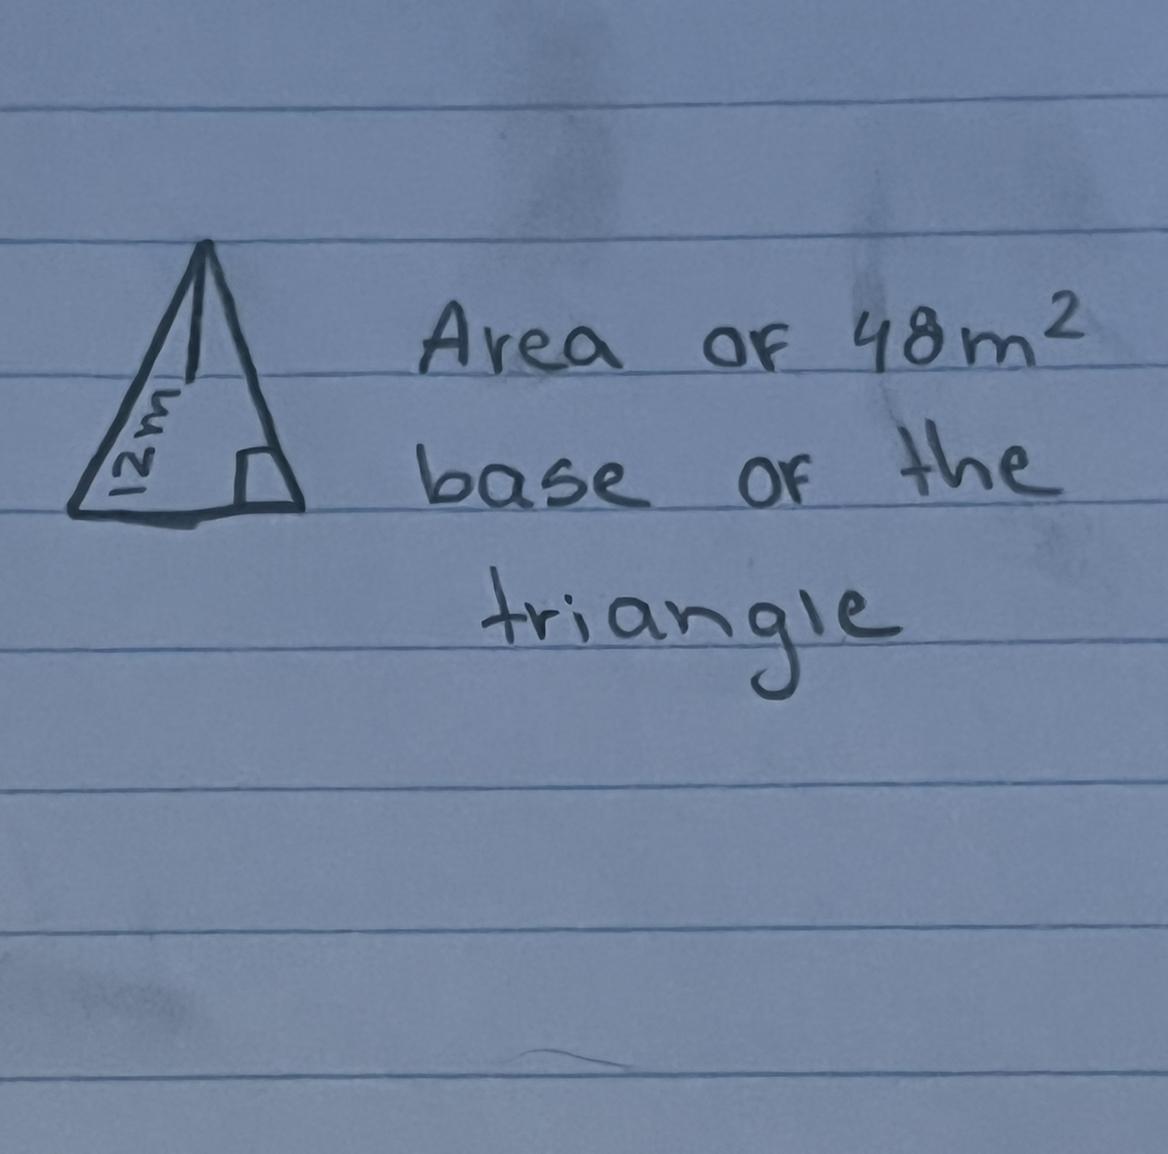 12m
Area of 48m²
base of the
triangle